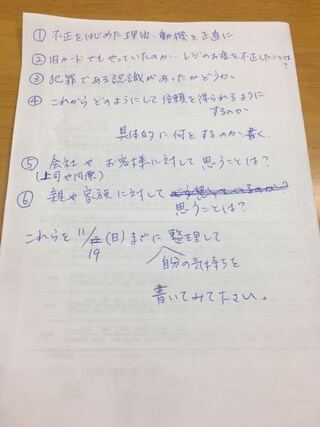 ① 不正をはじめた理由・動機を正直に
② 旧カードでもやっていたのか・レジのお金を不正したことは?
③ 犯罪である認識があったかどうか
④ これからどのようにして信頼を得られるように
するのか
具体的に何をするのか書く
⑤ 会社や お客様に対して 思うことは?
(上司や同僚)
⑥ 親や家族に対して
思うことは?
これらを 11/19(日)までに 整理して
自分の気持ちを
書いてみて下さい。